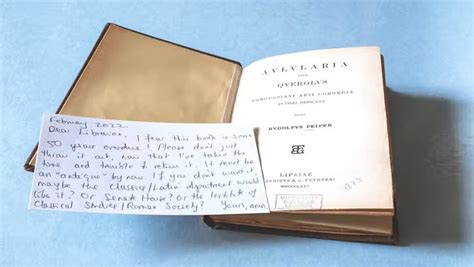 February 2022
Dear Librarian, I fear this book is some
50 years overdue! Please don't just
throw it out, now that I've taken the
time and trouble to return it. It must be
an "antique" by now. If you don't want it,
maybe the Classics/Latin department would
like it? Or Senate House? Or the Institute of
Classical Studies/Roman Society? Yours, anon.
AVLVLARIA
SIVE
QVEROLVS
THEODOSIANI AEVI COMOEDIA
RVTILIO DEDICATA
EDIDIT
RVDOLFVS PEIPER
LIPSIAE
MDCCCLXXV